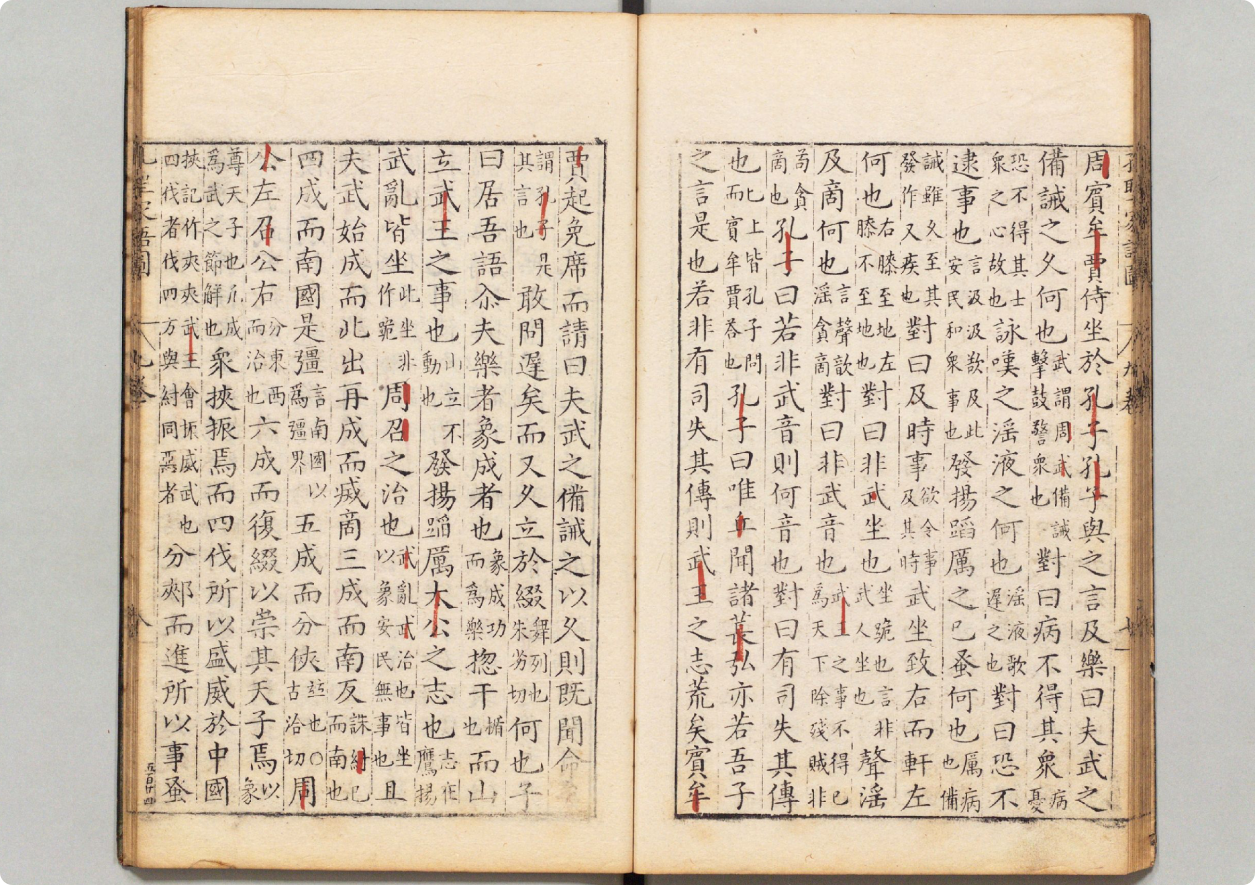 周賓牟賈侍坐於孔子孔子與之言及樂曰夫武之
備誡之久何也武謂周武備誡擊鼓警衆也對曰病不得其衆病憂
恐不得其士衆之心故也詠嘆之淫液之何也淫液歌遲之也對曰恐不
逮事也言汲汲歎及此安民和衆事也發揚蹈厲之已蚤何也厲病也備
誡雖久至其發作又疾也對曰及時事欲令事及其時武坐致右而軒左
何也右膝至地左膝不至地也對曰非武坐也坐跪也言非武人坐也聲淫
及商何也言聲歆淫貪商對曰非武音也武王之事不得已爲天下除殘賊非
苟貪商也孔子曰若非武音則何音也對曰有司失其傳
也匕上皆孔子問而賓牟賈荅也孔子曰唯丘聞諸萇弘亦若吾子
之言是也若非有司失其傳則武王之志荒矣賓牟
賈起免席而請曰夫武之備誡之以久則既聞命
謂孔子其言也是敢問遲矣而又久立於綴舞列也朱劣切何也子
曰居吾語尒夫樂者象成者也象成功而爲樂揔干楯也而山
立武王之事也山立不動也發揚蹈厲大公之志也志在鷹揚
武亂皆坐此坐非作周召之治也武亂武治也皆坐以象安民無事也且
夫武始成而北出再成而滅商三成而南反誅紂已而南也
四成而南國是彊言南國以爲彊界五成而分陝也○古洽切周
公左召公右分東西而治也六成而復綴以崇其天子焉以象
尊天子也凡成爲武之節解也衆挾振焉而四伐所以盛威於中國
挾記作夾夾武王會振威武也四伐者伐四方與紂同惡者分郟而進所以事蚤